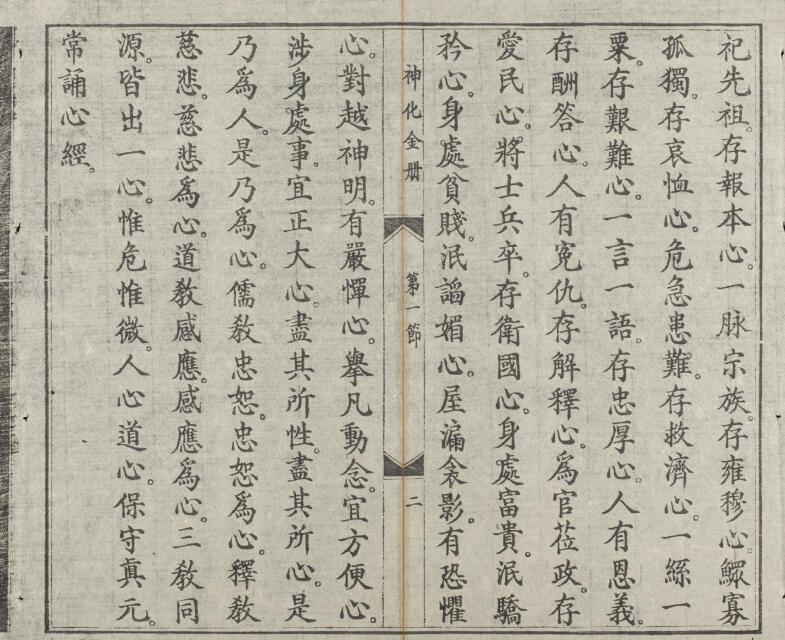 祀先祖。存報本心。一脉宗族。存雍穆心。鰥寡
孤獨。存哀恤心。危急患難。存救濟心。一絲一
粟。存艱難心。一言一語。存忠厚心。人有恩義。
存酬答心。人有冤仇。存解釋心。為官莅政。存
愛民心。將士兵卒。存衛國心。身處富貴。泯驕
矜心。身處貧賤。泯謟媚心。屋漏衾影。有恐懼
神化金册 第一節 二
心。對越神明。有嚴憚心。舉凡動念。宜方便心。
涉身處事。宜正大心。盡其所性。盡其所心。是
乃爲人。是乃爲心。儒教忠恕。忠恕爲心。釋教
慈悲。慈悲爲心。道教感應。感應爲心。三教同
源。皆出一心。惟危惟微。人心道心。保守眞元。
常誦心經。